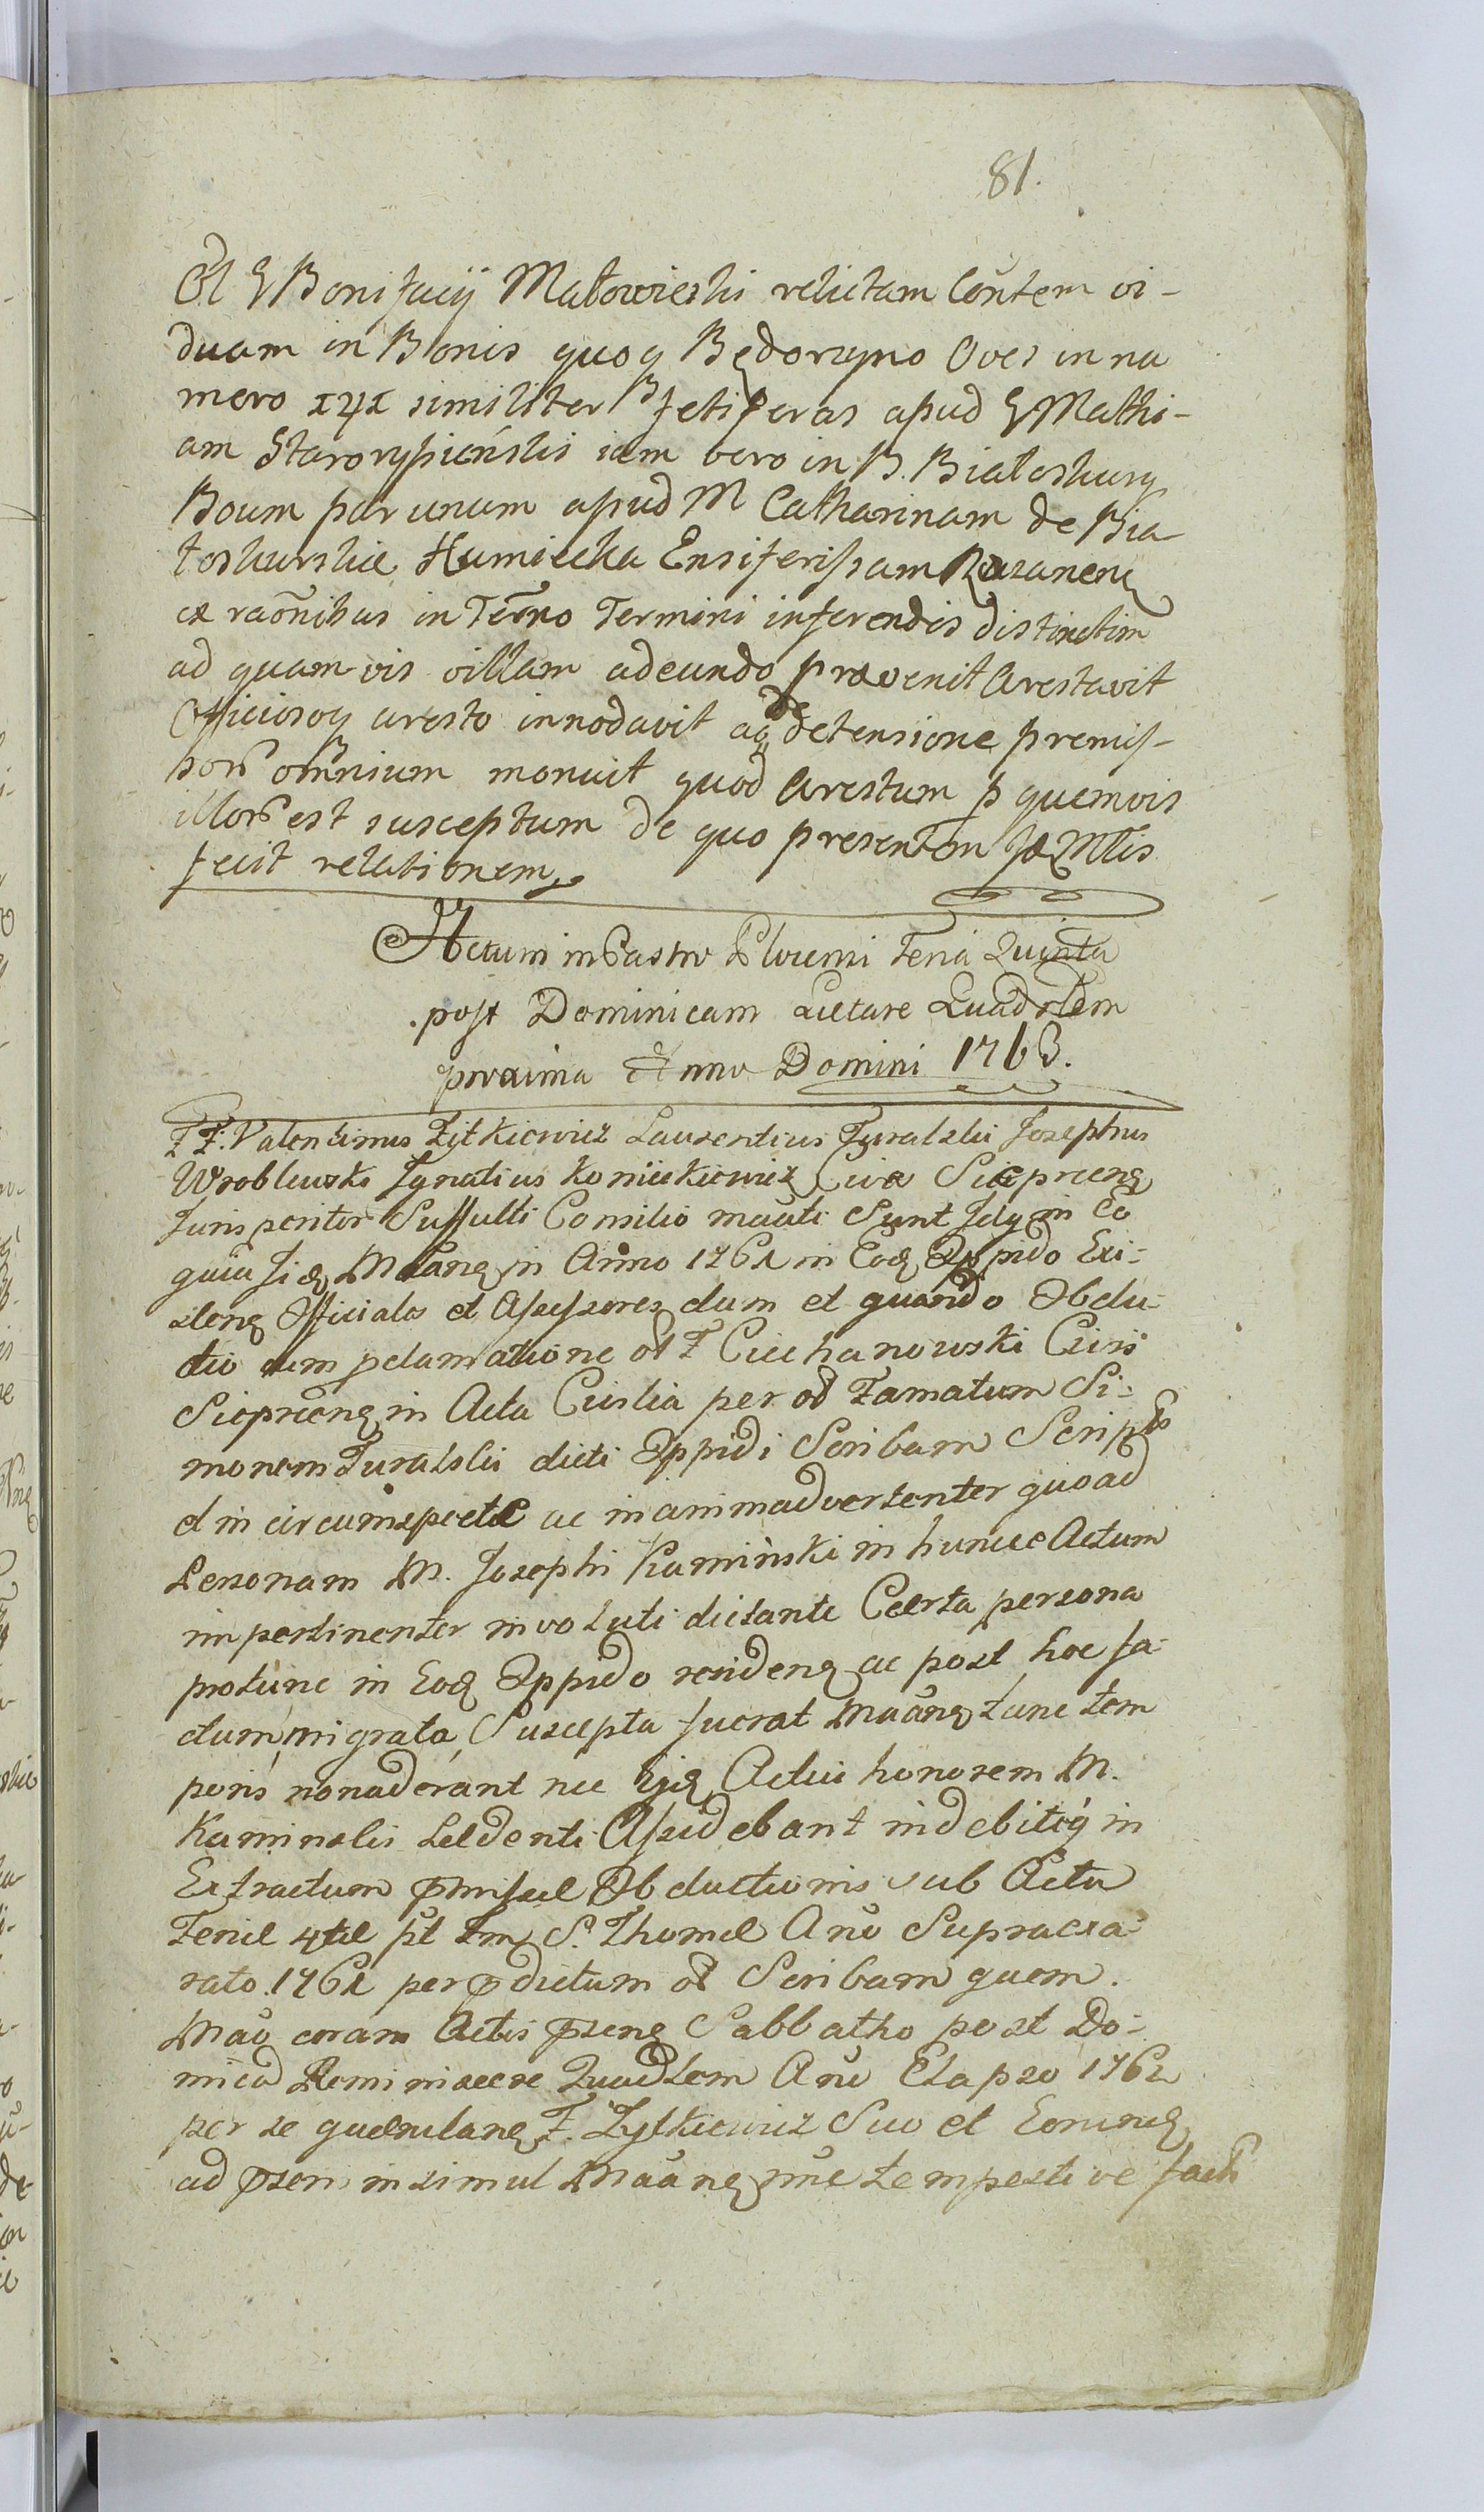 81.
Ol G Bonifacij Małowieski relictam Contem vi-
duam in Bonis quoq Będorzyno Oves in nu
mero XYX similiter fetiferas apud G Mathi-
am Starorypiński iam vero in B. Białoskury
Boum par unum apud M Catharinam de Bia
łoskurskie Humiecka Ensiferissam Rozanens
ex raonibus in Termo Termini inferendis distinctim
ad quam vis villam adeundo prævenit Arestavit
Officiosoq aresto innodavit aq de detensione premis-
sor omnium monuit quod Arestum p quemvis
illor est susceptum de quo presentem Jæ Mtis
fecit relationem
Actum in Castro Plocensi Feria Quinta
post Dominicam Lætare Quadrlem
proxima Anno Domini 1763.
FF: Valentinus Zytkiewicz Laurentius Turalski Josephus
Wroblewski Ignatius Konickiewicz Cives Sieprcens
Juris peritor Suffulti Consilio mauti Sunt Idq in Eo
quia Ji q Mtans in Anno 1761 in Eod Oppido Exi-
stens Officiales et Assessores dum et quando Obdu-
ctio cum pclamatione ol F Ciechanowski Civis
Sieprcens in Acta Civilia per ol Famatum Si-
monem Turalski dicti Oppidi Scribam Scripts
et in circumspecte ac inanimadvertenter quoad
Personam M. Josephi Kaminski in huncce Actum
impertinenter involuti dictante Certa persona
protunc in Eod Oppido residens ac post hoc fa-
ctum migrata, Suscepta fuerat Maans tunc tem
poris non aderant nec Ejd Actui honorem M.
Kaminski Ledenti Assidebant indebiteq in
Extractum pmissæ Obductionis sub Actu
Feriæ 4tæ pt Fm S. Thomæ Ano Supraexa-
rato 1761 per pdictum ol Scribam quem
Mao coram Actis psens Sabbatho post Do-
mica Reminiscere Quadlem Ano Elapso 1762
per se querulans F. Zytkiewicz Suo et Eorund
ad psens insimul Maans nne tempestive fact